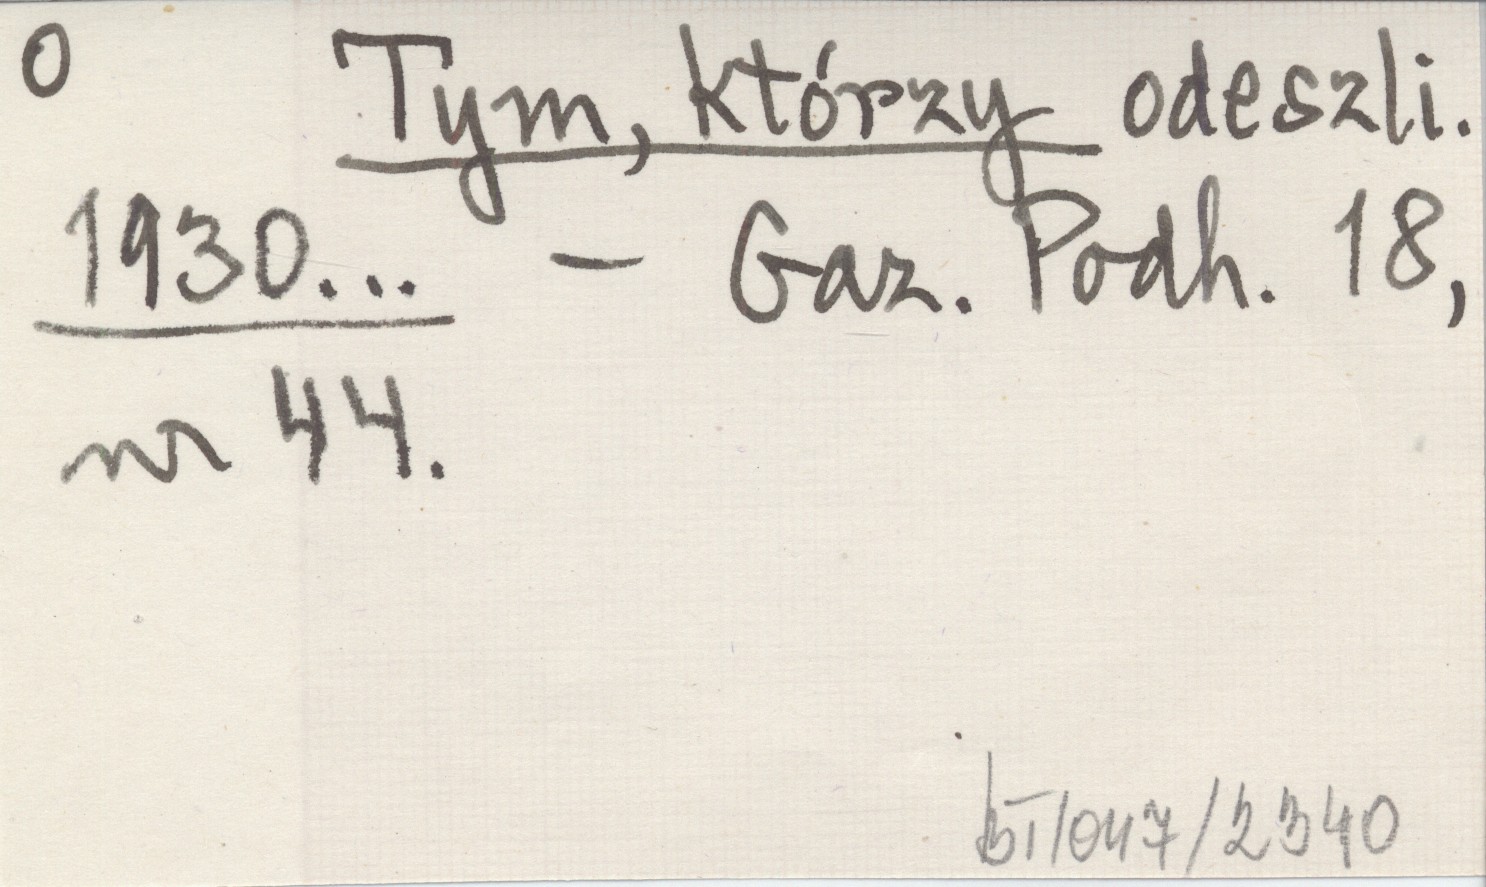 O Tym, którzy odeszli.
1930... - Gaz. Podh. 18,
nr 44.
bI/047/2340